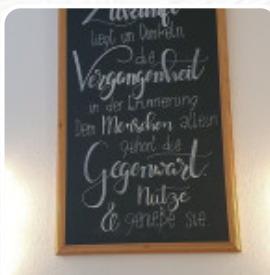 Zukunft
liegt im Dunkeln
die
Vergangenheit
in der Erinnerung
Dem Menschen allein
gehört die
Gegenwart.
Nutze
& genieße sie.